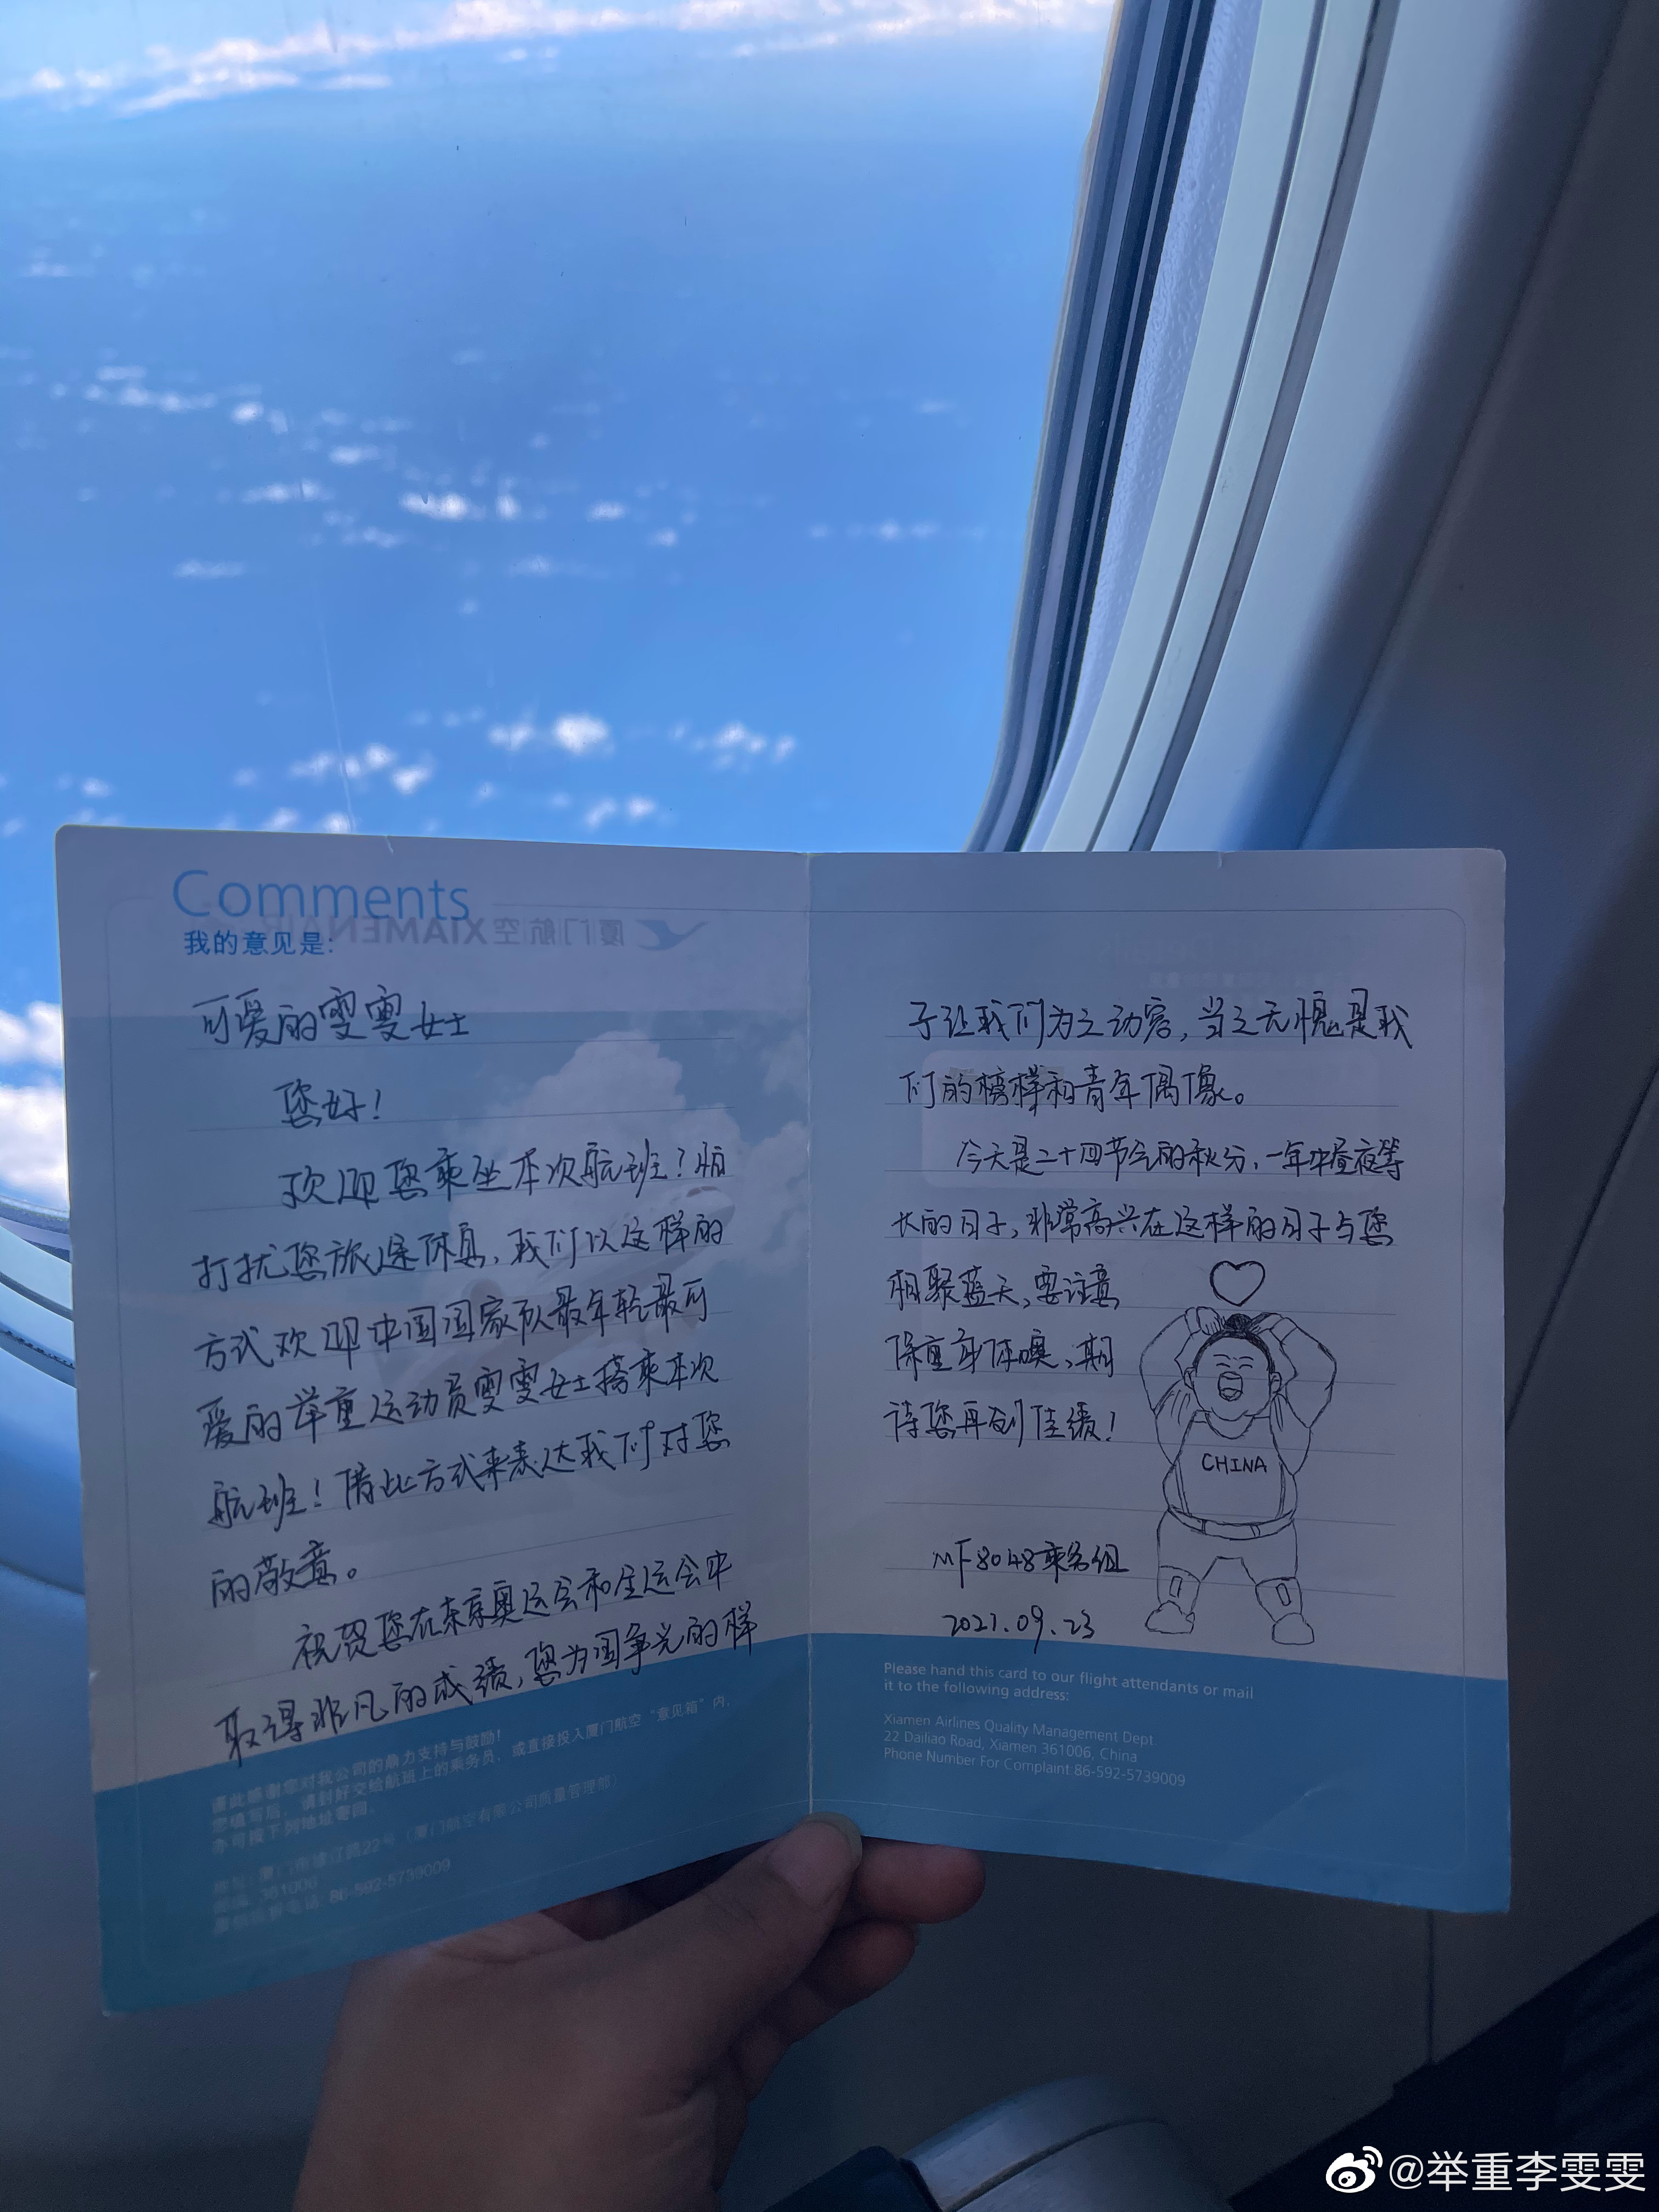 Comments
我的意见是:
可爱的雯雯女士
您好!
欢迎您乘坐本次航班!怕
打扰您旅途休息,我们以这样的
方式欢迎中国国家队最年轻最可
爱的举重运动员雯雯女士搭乘本次
航班!借此方式来表达我们对您
的敬意。
祝贺您在东京奥运会和全运会中
取得非凡的成绩,您为国争光的样
谨此感谢您对我公司的鼎力支持与鼓励!
您填写后,请封好交给航班上的乘务员,或直接投入厦门航空“意见箱”内,
亦可按下列地址寄回。
86-592-5739009
子让我们为之动容,当之无愧是我
们的榜样和青年偶像。
今天是二十四节气的秋分,一年中昼夜等
长的日子,非常高兴在这样的日子与您
相聚蓝天,要注意
保重身体噢,期
待您再创佳绩!
CHINA
MF8048乘务组
2021.09.23
Please hand this card to our flight attendants or mail
it to the following address:
Xiamen Airlines Quality Management Dept
22 Dailiao Road, Xiamen 361006, China
Phone Number For Complaint 86-592-5739009
@举重李雯雯